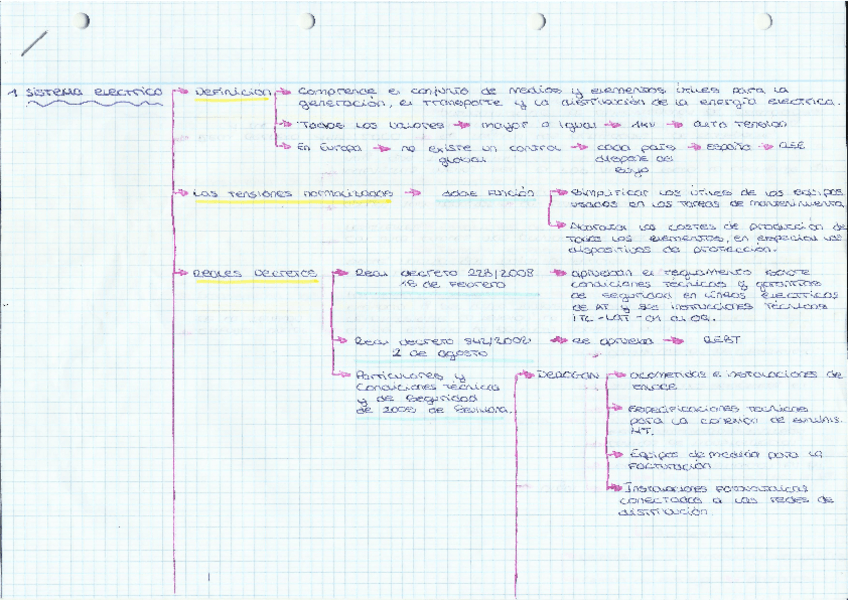 1 Sistema electrico
Definicion
Comprende el conjunto de medios y elementos útiles para la
generación, el transporte y la distribución de la energía electrica.
Todos los valores → mayor o igual → 1kV → alta tension
En Europa → no existe un control
global
→ cada país
dispone del
suyo
→ España → REE
Las tensiones normalizadas → doble función
Simplificar los útiles de los equipos
usados en las tareas de mantenimiento.
Abaratar los costes de producción de
todos los elementos, en especial los
dispositivos de protección.
Reales Decretos
Real decreto 223/2008
15 de Febrero
aprueban el reglamento sobre
condiciones técnicas y garantías
de seguridad en líneas electricas
de AT y sus instrucciones técnicas
ITC-LAT-01 al 09.
Real decreto 842/2002
2 de agosto
→ se aprueba → REBT
Particulares y
Condiciones técnicas
y de Seguridad
de 2005 de Sevillana.
Derogan
acometidas e instalaciones de
enlace
Especificaciones tecnicas
para la conexion de suminis.
Equipos de medida para la
facturación
Instalaciones fotovoltaicas
conectadas a las redes de
distribución